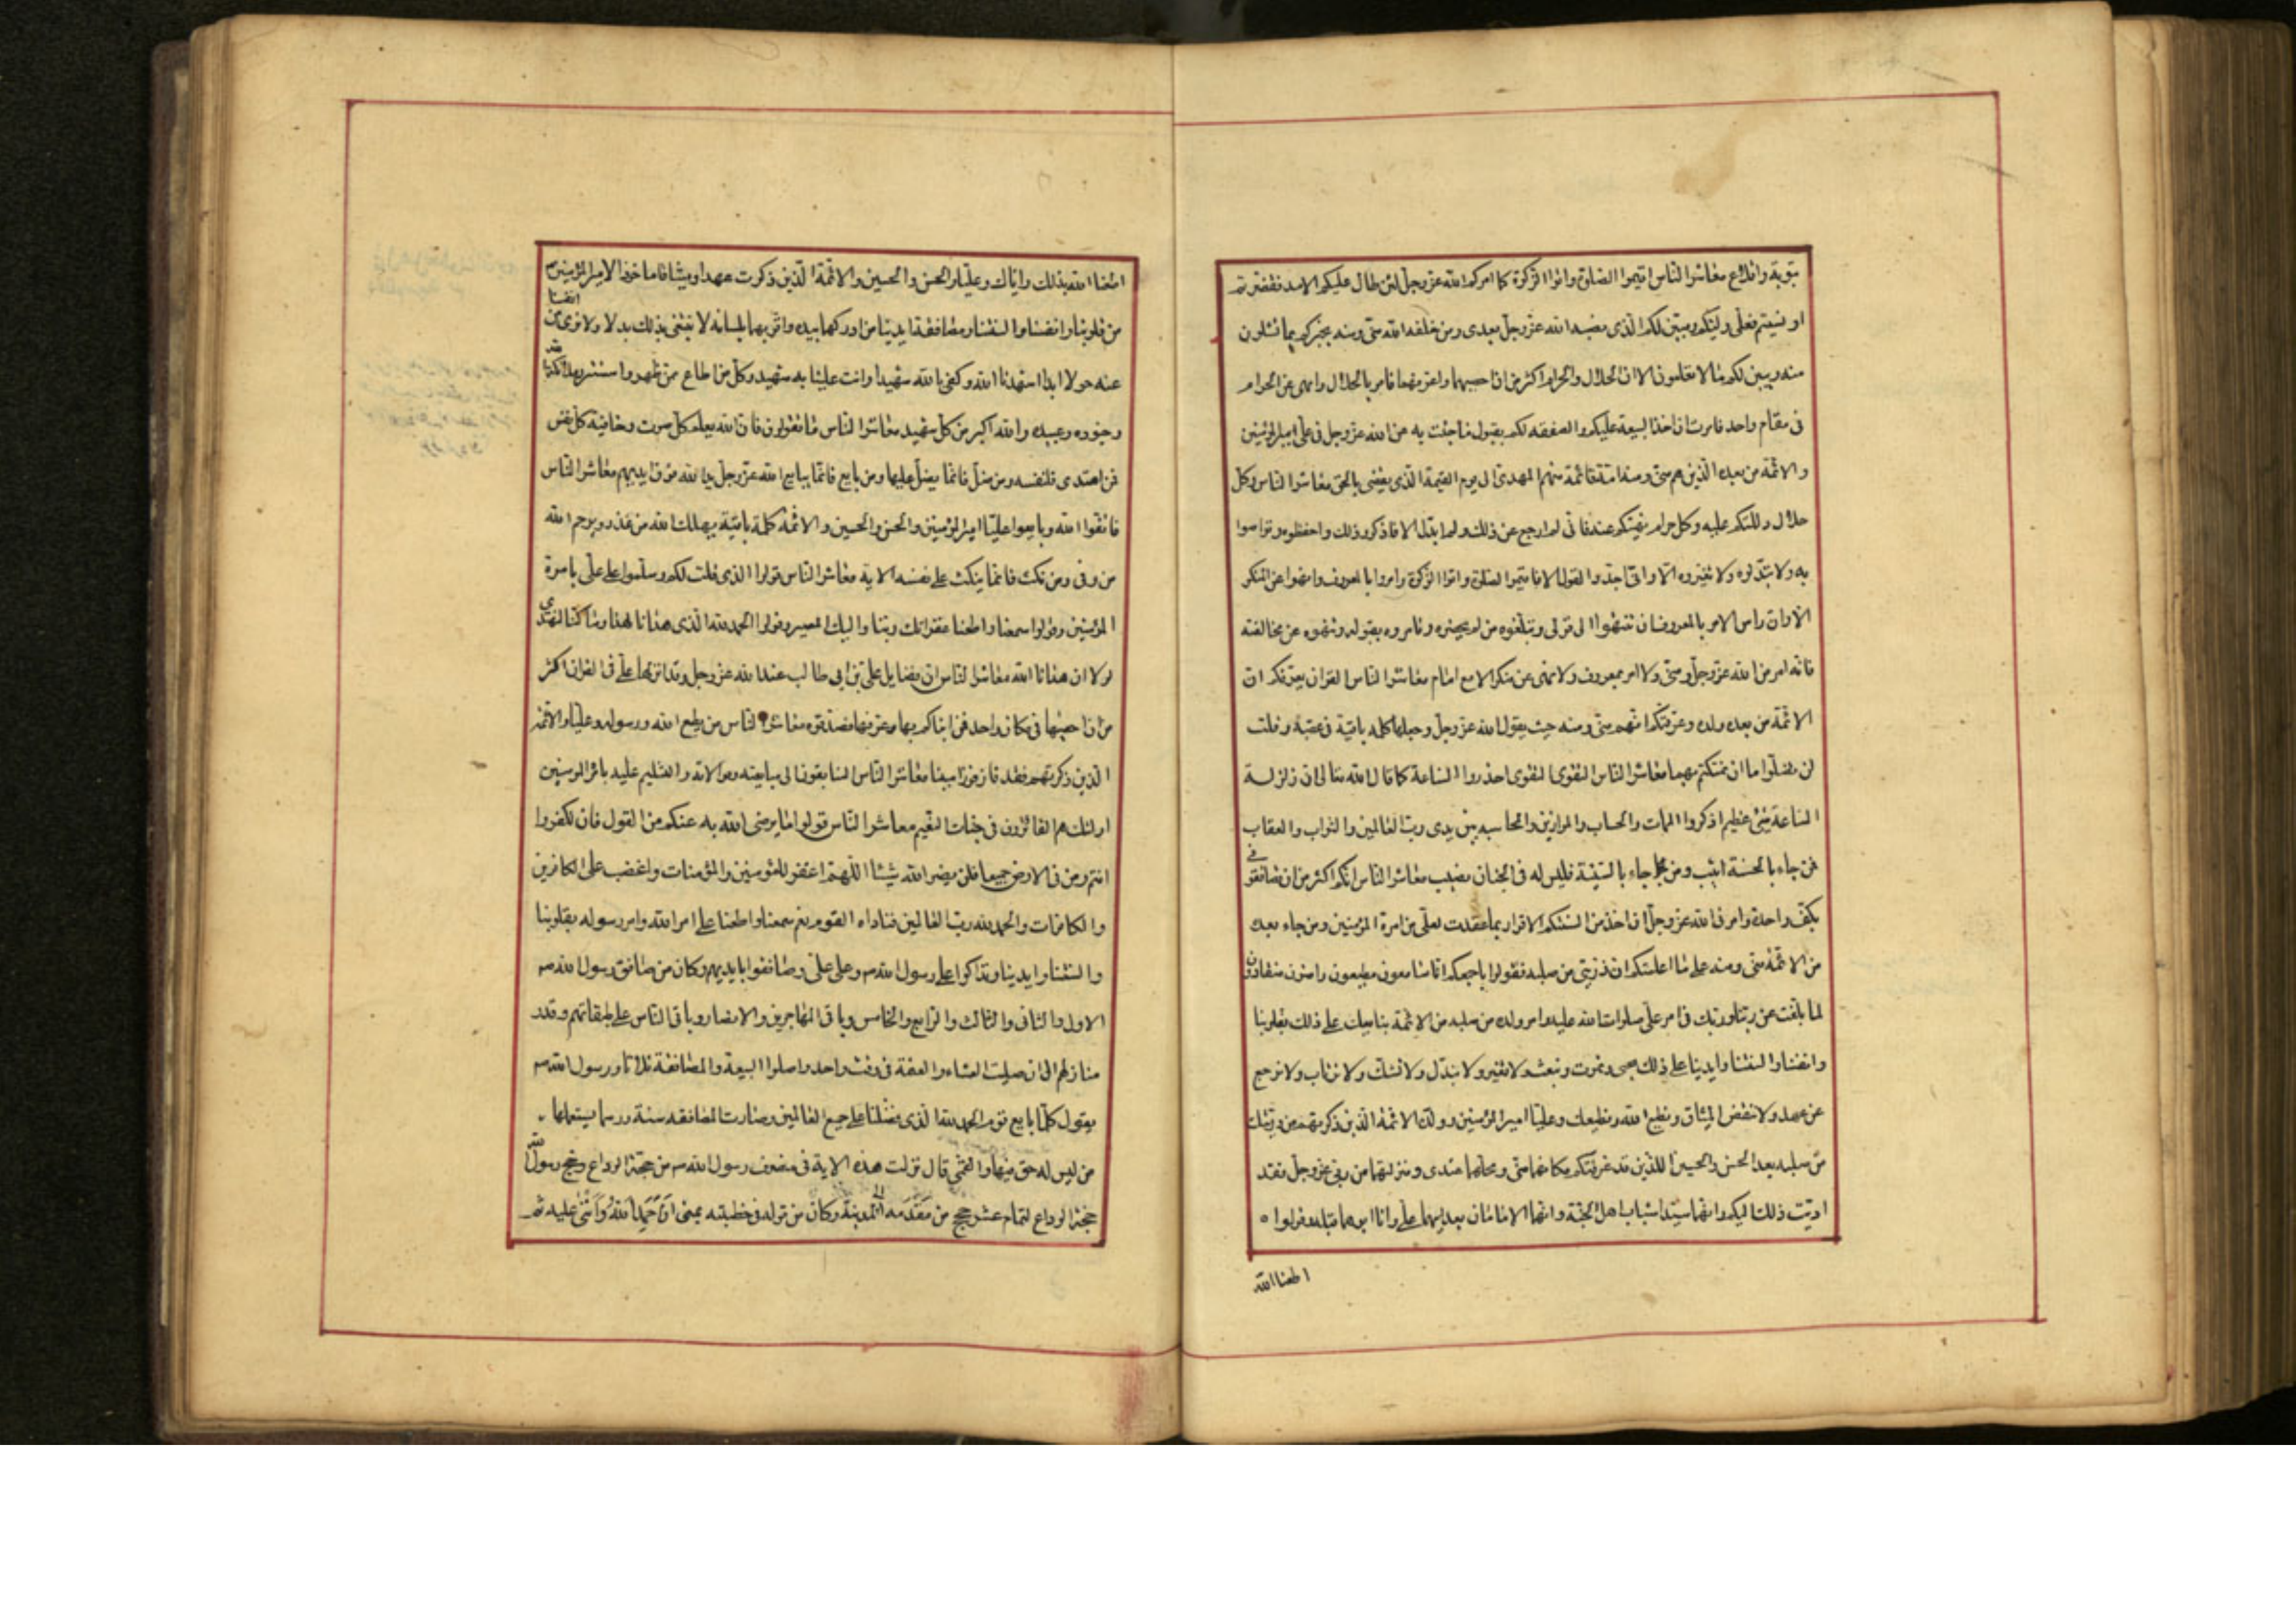 بتوبة واقلاع معاشر الناس اقيموا الصلوة واتوا الزكوة كما امركم الله عز وجل لئن طال عليكم الامد فقصرتم
او نسيتم فعلى وليكم ويبين لكم الذى نصبه الله عز وجل بعدى ومن خلفه الله منى ومنه يخبركم بما تسئلون
منه ويبين لكم ما لا تعلمون الا ان الحلال والحرام اكثر من ان احصيهما واعرفهما فامر بالحلال وانهى عن الحرام
فى مقام واحد فامرت ان اخذ البيعة عليكم والصفقه لكم بقبول ما جئت به عن الله عز وجل فى على امير المؤمنين
والائمة من بعده الذين هم منى ومنه امة قائمة منهم المهدى الى يوم القيمة الذى يقضى بالحق معاشر الناس وكل
حلال دللتكم عليه وكل حرام نهيتكم عنه فانى لم ارجع عن ذلك ولم ابدل الا فاذكروا ذلك واحفظوه وتواصوا
به ولا تبدلوه ولا تغيروه الا وانى اجدد القول الا فاقيموا الصلوة واتوا الزكوة وامروا بالمعروف وانهوا عن المنكر
الا وان راس الامر بالمعروف ان تنتهوا الى قولى وتبلغوه من لم يحضره وتامروه بقبوله وتنهوه عن مخالفته
فانه امر من الله عز وجل ومنى ولا امر بمعروف ولا نهى عن منكر الا مع امام معاشر الناس القران يعرفكم ان
الائمة من بعده ولده وعرفتكم انهم منى ومنه حيث يقول الله عز وجل وجعلها كلمه باقية فى عقبه وقلت
لن تضلوا ما ان تمسكتم بهما معاشر الناس التقوى التقوى احذروا الساعة كما قال الله تعالى ان زلزلة
الساعة شئ عظيم اذكروا الممات والحساب والموازين والمحاسبه بين يدى رب العالمين والثواب والعقاب
فمن جاء بالحسنة اثيب ومن جاء بالسيئة فليس له فى الجنان نصيب معاشر الناس انكم اكثر من ان تصافقونى
بكف واحدة وامرنى الله عز وجل ان اخذ من السنتكم الاقرار بما عقدت لعلى من امرة المؤمنين ومن جاء بعده
من الائمة منى ومنه على ما اعلمتكم ان ذريتى من صلبه فقولوا باجمعكم انا سامعون مطيعون راضون منقادون
لما بلغت عن ربنا وربك فى امر على صلوات الله عليه وامر ولده من صلبه من الائمة نبايعك على ذلك بقلوبنا
وانفسنا والسنتنا وايدينا على ذلك نحيى ونموت ونبعث ولا نغير ولا نبدل ولا نشك ولا نرتاب ولا نرجع
عن عهد ولا ننقض الميثاق ونطيع الله ونطيعك وعليا امير المؤمنين وولده الائمة الذين ذكرتهم من ذريتك
من صلبه بعد الحسن والحسين اللذين قد عرفتكم مكانهما منى ومحلهما عندى ومنزلتهما من ربى عز وجل فقد
اديت ذلك اليكم وانهما سيدا شباب اهل الجنة وانهما الامامان بعد ابيهما على وانا ابوهما قبله فقولوا
اطعنا الله
اطعنا الله بذلك واياك وعليا والحسن والحسين والائمة الذين ذكرت عهدا وميثاقا ماخوذا لامير المؤمنين
من قلوبنا وانفسنا والسنتنا ومصافقة ايدينا من ادركهما بيده واقر بهما بلسانه لا نبتغى بذلك بدلا ولا نرى من انفسنا
عنه حولا ابدا اشهدنا الله وكفى بالله شهيدا وانت علينا به شهيد وكل من اطاع ممن ظهر واستتر وملائكة الله
وجنوده وعبيده والله اكبر من كل شهيد معاشر الناس ما تقولون فان الله يعلم كل صوت وخافية كل نفس
فمن اهتدى فلنفسه ومن ضل فانما يضل عليها ومن بايع فانما يبايع الله عز وجل يد الله فوق ايديهم معاشر الناس
فاتقوا الله وبايعوا عليا امير المؤمنين والحسن والحسين والائمة كلمة باقية يهلك الله من غدر ويرحم الله
من وفى ومن نكث فانما ينكث على نفسه الاية معاشر الناس قولوا الذى قلت لكم وسلموا على على بامرة
المؤمنين وقولوا سمعنا واطعنا غفرانك ربنا واليك المصير وقولوا الحمد لله الذى هدانا لهذا وما كنا لنهتدى
لولا ان هدانا الله معاشر الناس ان فضايل على بن ابى طالب عند الله عز وجل وقد انزلها على فى القران اكثر
من ان احصيها فى مكان واحد فمن انباكم بها وعرفها فصدقوه معاشر الناس من يطع الله ورسوله وعليا والائمة
الذين ذكرتهم فقد فاز فوزا مبينا معاشر الناس السابقون الى مبايعته وموالاته والتسليم عليه بامرة المؤمنين
اولئك هم الفائزون فى جنات النعيم معاشر الناس قولوا ما يرضى الله به عنكم من القول فان تكفروا
انتم ومن فى الارض جميعا فلن يضر الله شيئا اللهم اغفر للمؤمنين والمؤمنات واغضب على الكافرين
والكافرات والحمد لله رب العالمين فناداه القوم نعم سمعنا واطعنا على امر الله وامر رسوله بقلوبنا
والسنتنا وايدينا وتداكوا على رسول الله ص وعلى على وصافقوا بايديهم وكان من صافق رسول الله ص
الاول والثانى والثالث والرابع والخامس وباقى المهاجرين والانصار وباقى الناس على طبقاتهم وقدر
منازلهم الى ان صليت العشاء والعتمة فى وقت واحد واصلوا البيعة والمصافقة ثلاثا ورسول الله ص
يقول كلما بايع قوم الحمد لله الذى فضلنا على جميع العالمين وصارت المصافقه سنة ورسما يستعملها
من ليس له حق فيها والقمى قال نزلت هذه الاية فى منصرف رسول الله ص من حجة الوداع وحج رسول الله
حجة الوداع لتمام عشر حجج من مقدمه الى المدينة وكان من قوله فى خطبته بمنى ان حمد الله واثنى عليه ثم